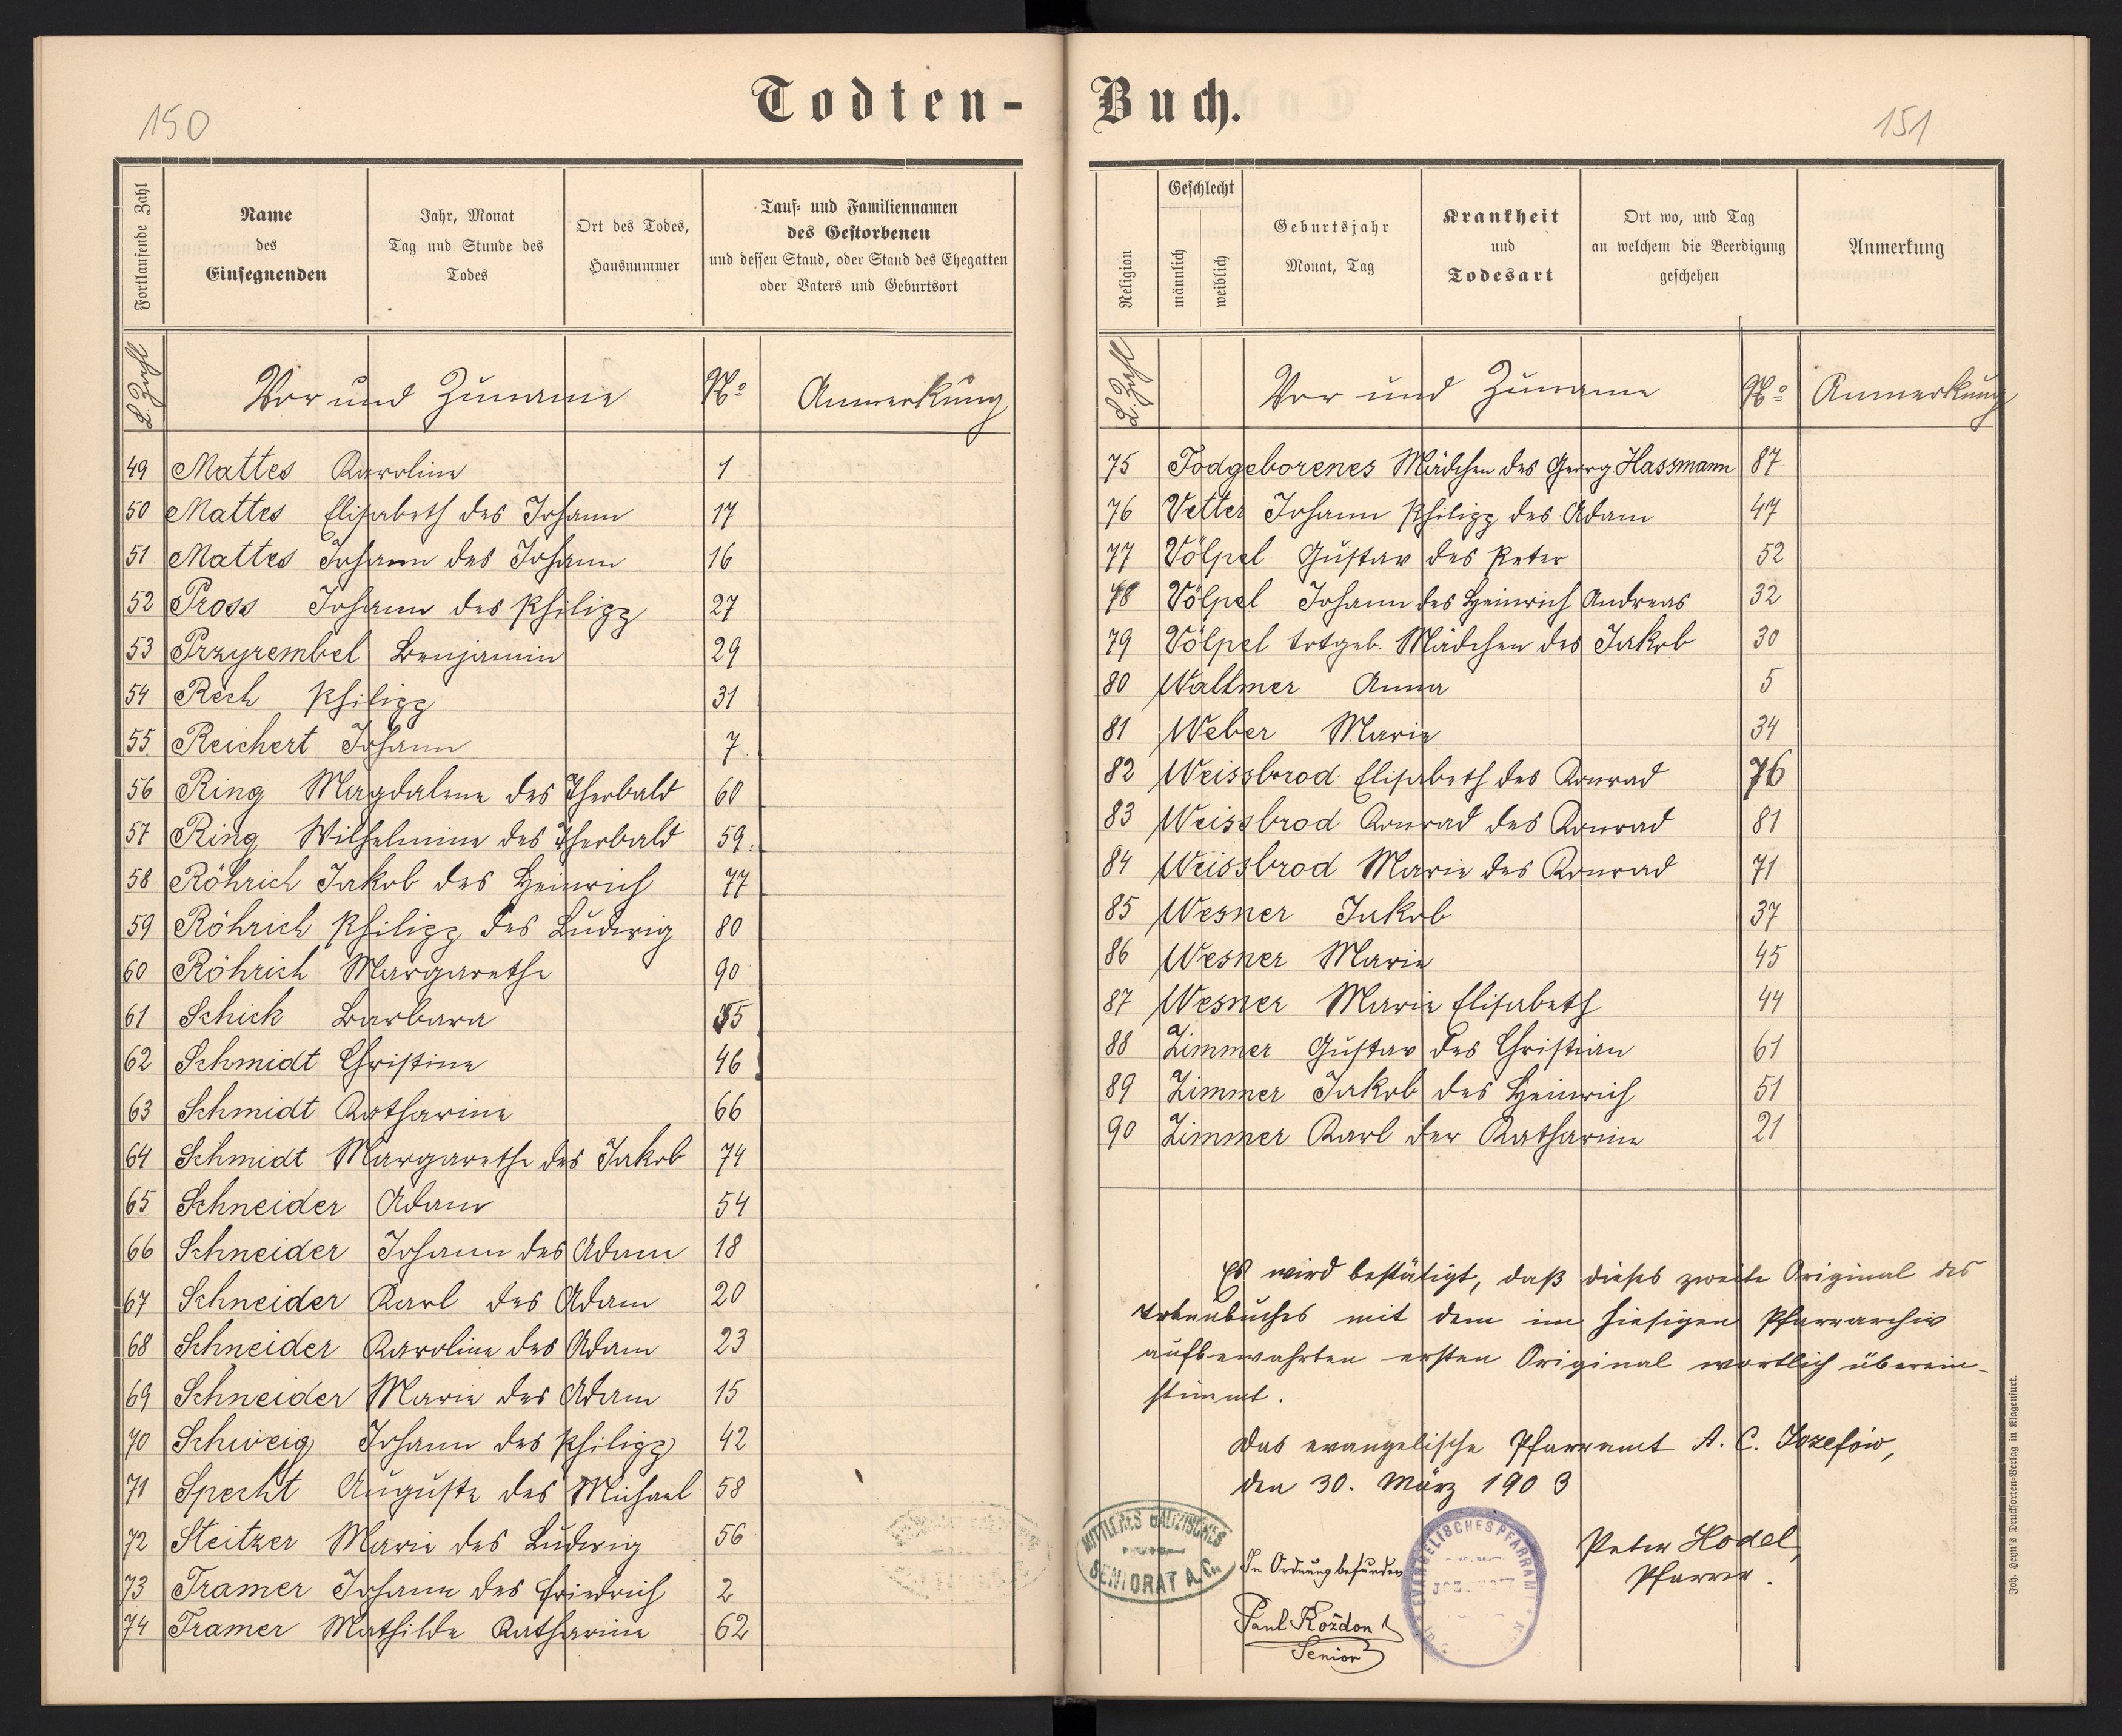 150
Todten-
Fortlaufende Zahl
Name
des
Einsegnenden
Jahr, Monat
Tag und Stunde des
Todes
Ort des Todes,
Hausnummer
Tauf- und Familiennamen
des Gestorbenen
und dessen Stand, oder Stand des Ehegatten
oder Vaters und Geburtsort
L. Zahl Vor und Zuname No Anmerkung
49 Mattes Karoline 1
50 Mattes Elisabeth des Johann 17
51 Mattes Johann des Johann 16
52 Pross Johann des Philipp 27
53 Przyrembel Benjamin 29
54 Rech Philipp 31
55 Reichert Johann 7
56 Ring Magdalena des Theobald 60
57 Ring Wilhelmine des Theobald 59.
58 Röhrich Jakob des Heinrich 77
59 Röhrich Philipp des Ludwig 80
60 Röhrich Margarethe 90
61 Schick Barbara 35
62 Schmidt Christine 46
63 Schmidt Katharina 66
64 Schmidt Margarethe des Jakob 74
65 Schneider Adam 54
66 Schneider Johann des Adam 18
67 Schneider Karl des Adam 20
68 Schneider Karoline des Adam 23
69 Schneider Marie des Adam 15
70 Schweig Johann des Philipp 42
71 Specht Auguste des Michael 58
72 Steitzer Marie des Ludwig 56
73 Tramer Johann des Friedrich 2
74 Tramer Mathilde Katharina 62
Buch.
151
Religion
Geschlecht
männlich
weiblich
Geburtsjahr
Monat, Tag
Krankheit
und
Todesart
Ort wo, und Tag
an welchem die Beerdigung
geschehen
Anmerkung
L. Zahl Vor und Zuname No Anmerkung
75 Todgeborenes Mädchen des Georg Hassmann 87
76 Vetter Johann Philipp des Adam 47
77 Völpel Gustav des Peter 52
78 Völpel Johann des Heinrich Andreas 32
79 Völpel totgeb. Mädchen des Jakob 30
80 Wallmer Anna 5
81 Weber Marie 34
82 Weissbrod Elisabeth des Konrad 76
83 Weissbrod Konrad des Konrad 81
84 Weissbrod Marie des Konrad 71
85 Wesner Jakob 37
86 Wesner Marie 45
87 Wesner Marie Elisabeth 44
88 Zimmer Gustav des Christian 61
89 Zimmer Jakob des Heinrich 51
90 Zimmer Karl der Katharina 21
Es wird bestätigt, daß dieses zweite Original des
Totenbuches mit dem im hiesigen Pfarrarchiv
aufbewahrten ersten Original wortlich überein-
stimmt.
Das evangelische Pfarramt A. C. Józefów,
den 30. März 1903
MITTLERES GALIZISCHES
SENIORAT A.C.
In Ordnung befunden
Paul Roždon
Senior
EVANGELISCHES PFARRAMT
Peter Hodel,
Pfarrer.
Joh. Heyn's Drucksorten-Verlag in Klagenfurt.